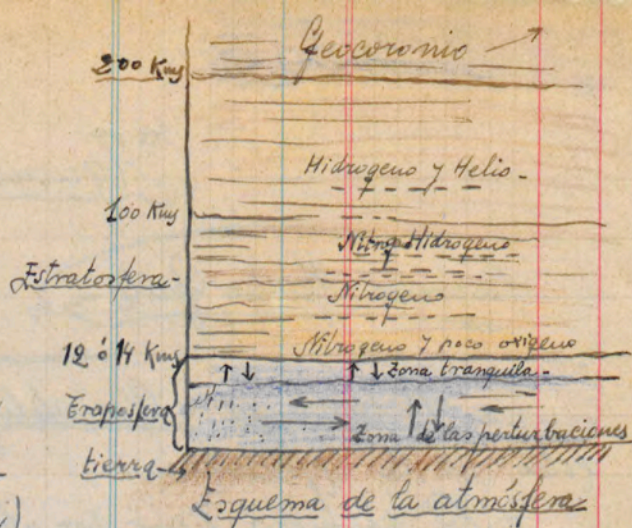 Geocoronio
200 Kms
Hidrogeno y Helio -
100 Kms
Nitro Hidrogeno
Estratosfera -
Nitrogeno
Nitrogeno y poco oxigeno
12 ó 14 Kms
Zona tranquila -
Troposfera
Zona de las perturbaciones
tierra -
Esquema de la atmósfera